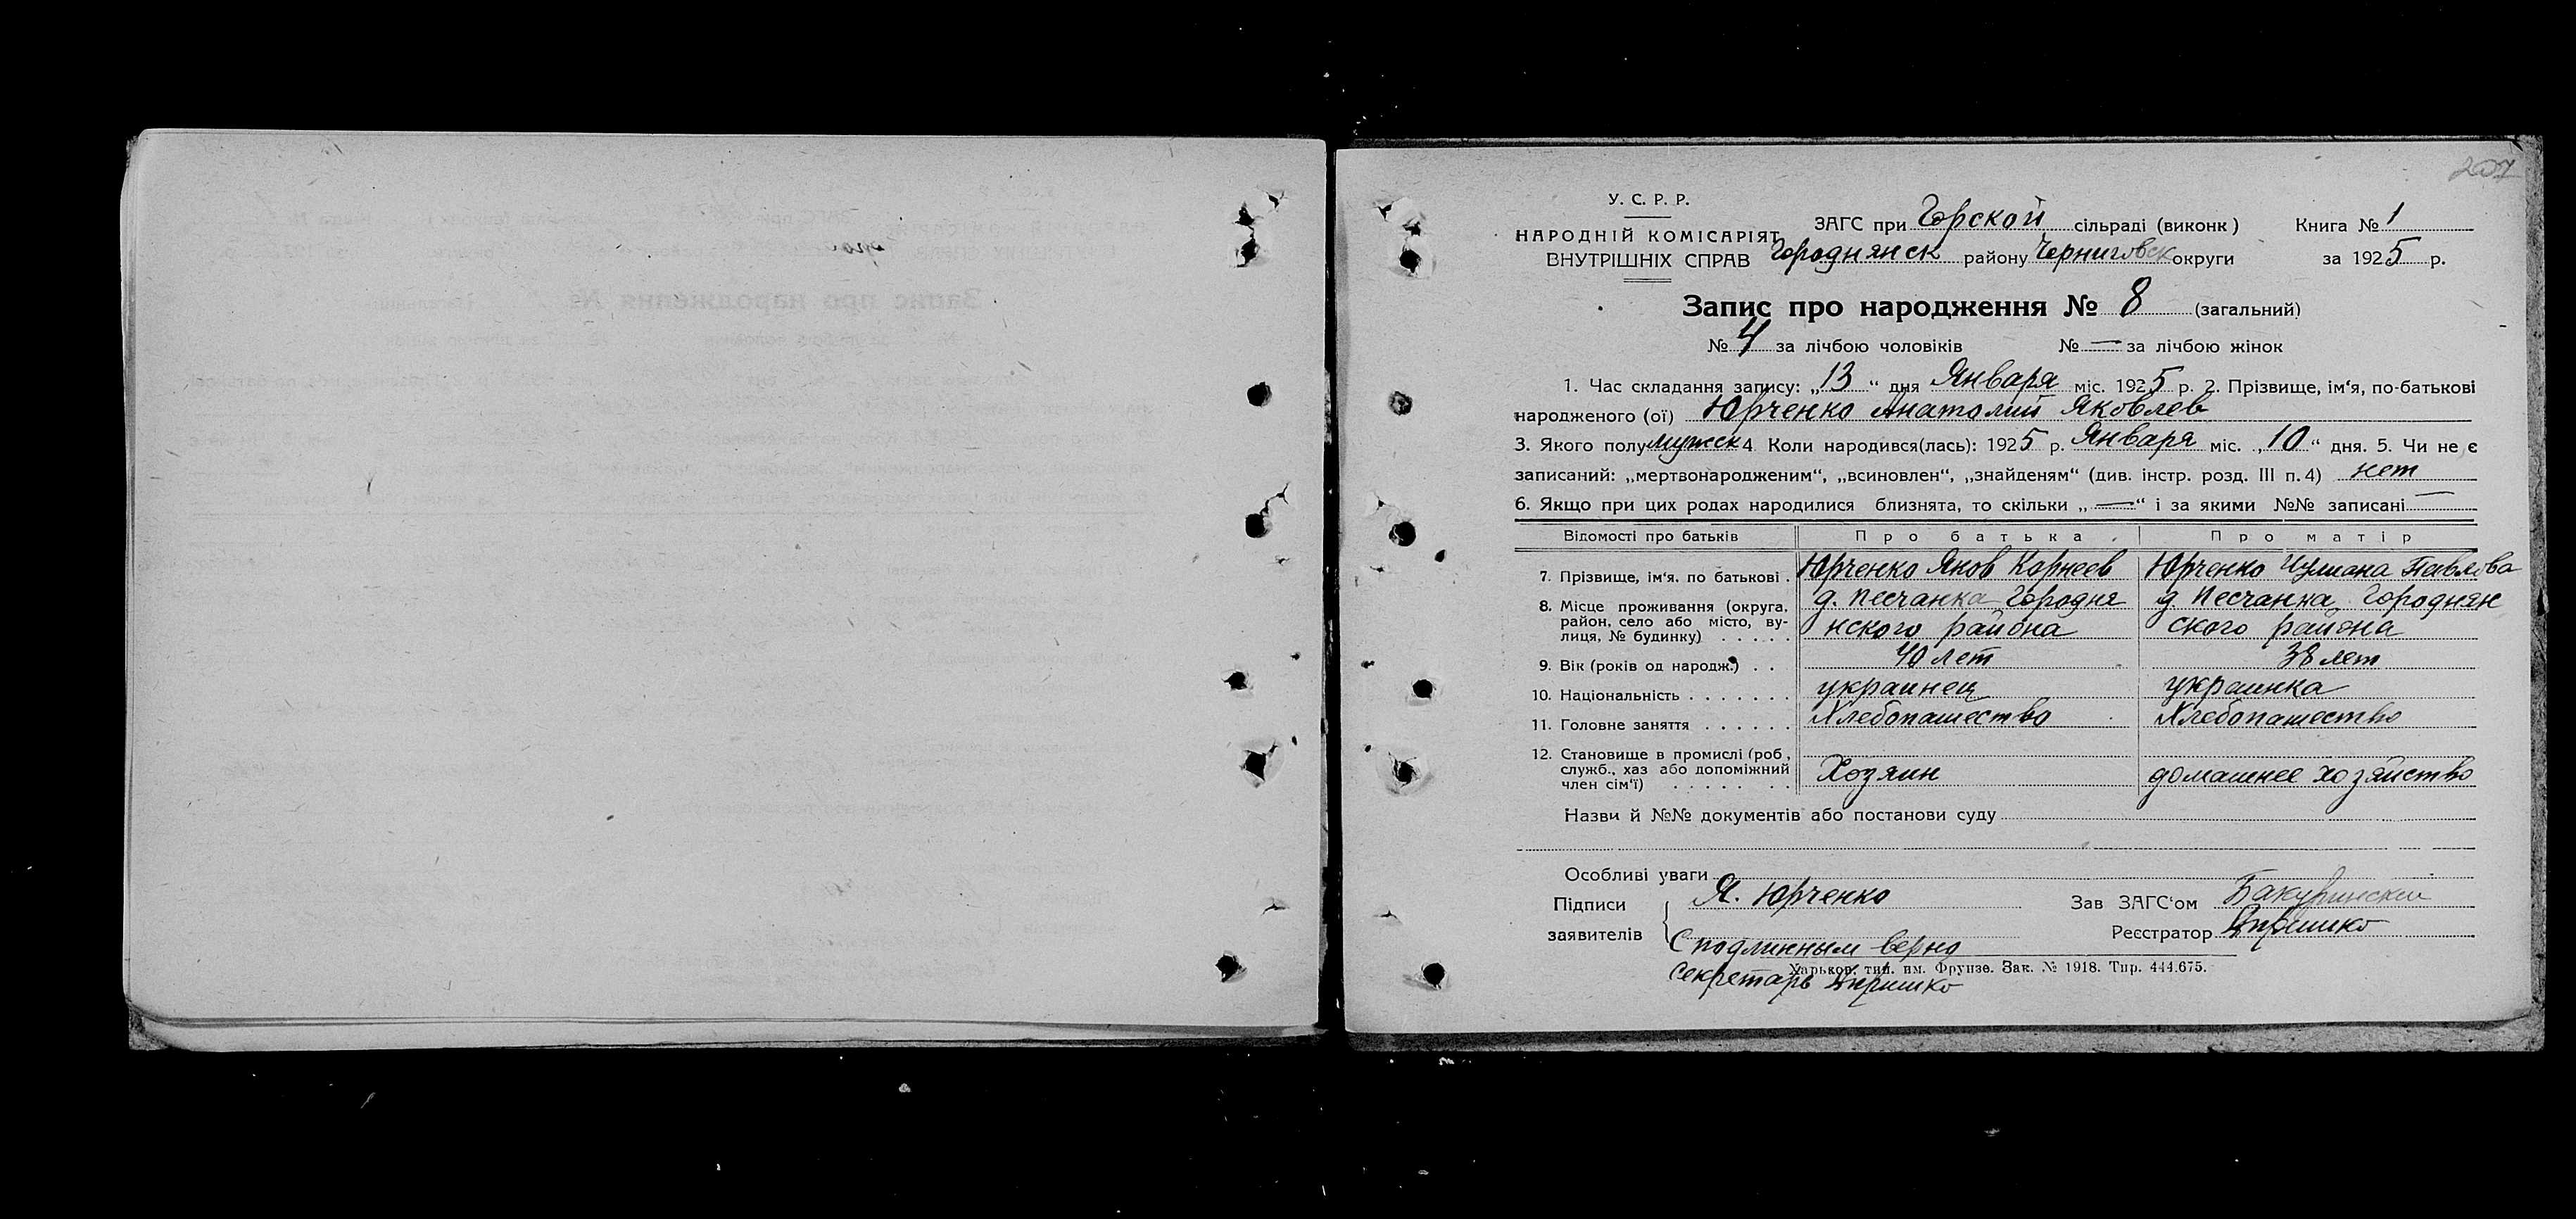 207
У. С. Р. Р.
НАРОДНІЙ КОМІСАРІЯТ
ВНУТРІШНІХ СПРАВ
ЗАГС при Горской сільраді (виконк) Книга № 1
Городнянск району Черниговск округи за 1925 р.
Запис про народження № 8 (загальний)
№ 4 за лічбою чоловіків № — за лічбою жінок
1. Час складання запису: „13“ дня Января міс. 1925 р. 2. Прізвище, ім‘я, по-батькові
народженого (ої) Юрченко Анатолий Яковлев
3. Якого полу мужск 4 Коли народився(лась): 1925 р. Января міс. „10“ дня. 5. Чи не є
записаний: „мертвонародженим“, „всиновлен“, „знайденям“ (див. інстр. розд. III п. 4) нет
6. Якщо при цих родах народилися близнята, то скільки „—“ і за якими №№ записані —
Відомості про батьків Про батька Про матір
7. Прізвище, ім‘я. по батькові . Юрченко Яков Корнеев Юрченко Иулиана Павлова
8. Місце проживання (округа, д. Песчанка Городня д. Песчанка Городнян
район, село або місто, ву- нского района ского района
лиця, № будинку) . . . . .
9. Вік (років од народж.) . . 40 лет 38 лет
10. Національність . . . . . . . украинец украинка
11. Головне заняття . . . . . . Хлебопашество Хлебопашество
12. Становище в промислі (роб,
служб., хаз або допоміжний Хозяин домашнее хозяйство
член сім‘ї) . . . . . . .
Назви й №№ документів або постанови суду
Особливі уваги
Підписи Я. Юрченко Зав ЗАГС‘ом
заявителів Реєстратор
С подлинным верно
Харьков. тип. им. Фрунзе. Зак. № 1918. Тир. 444.675.
Секретарь